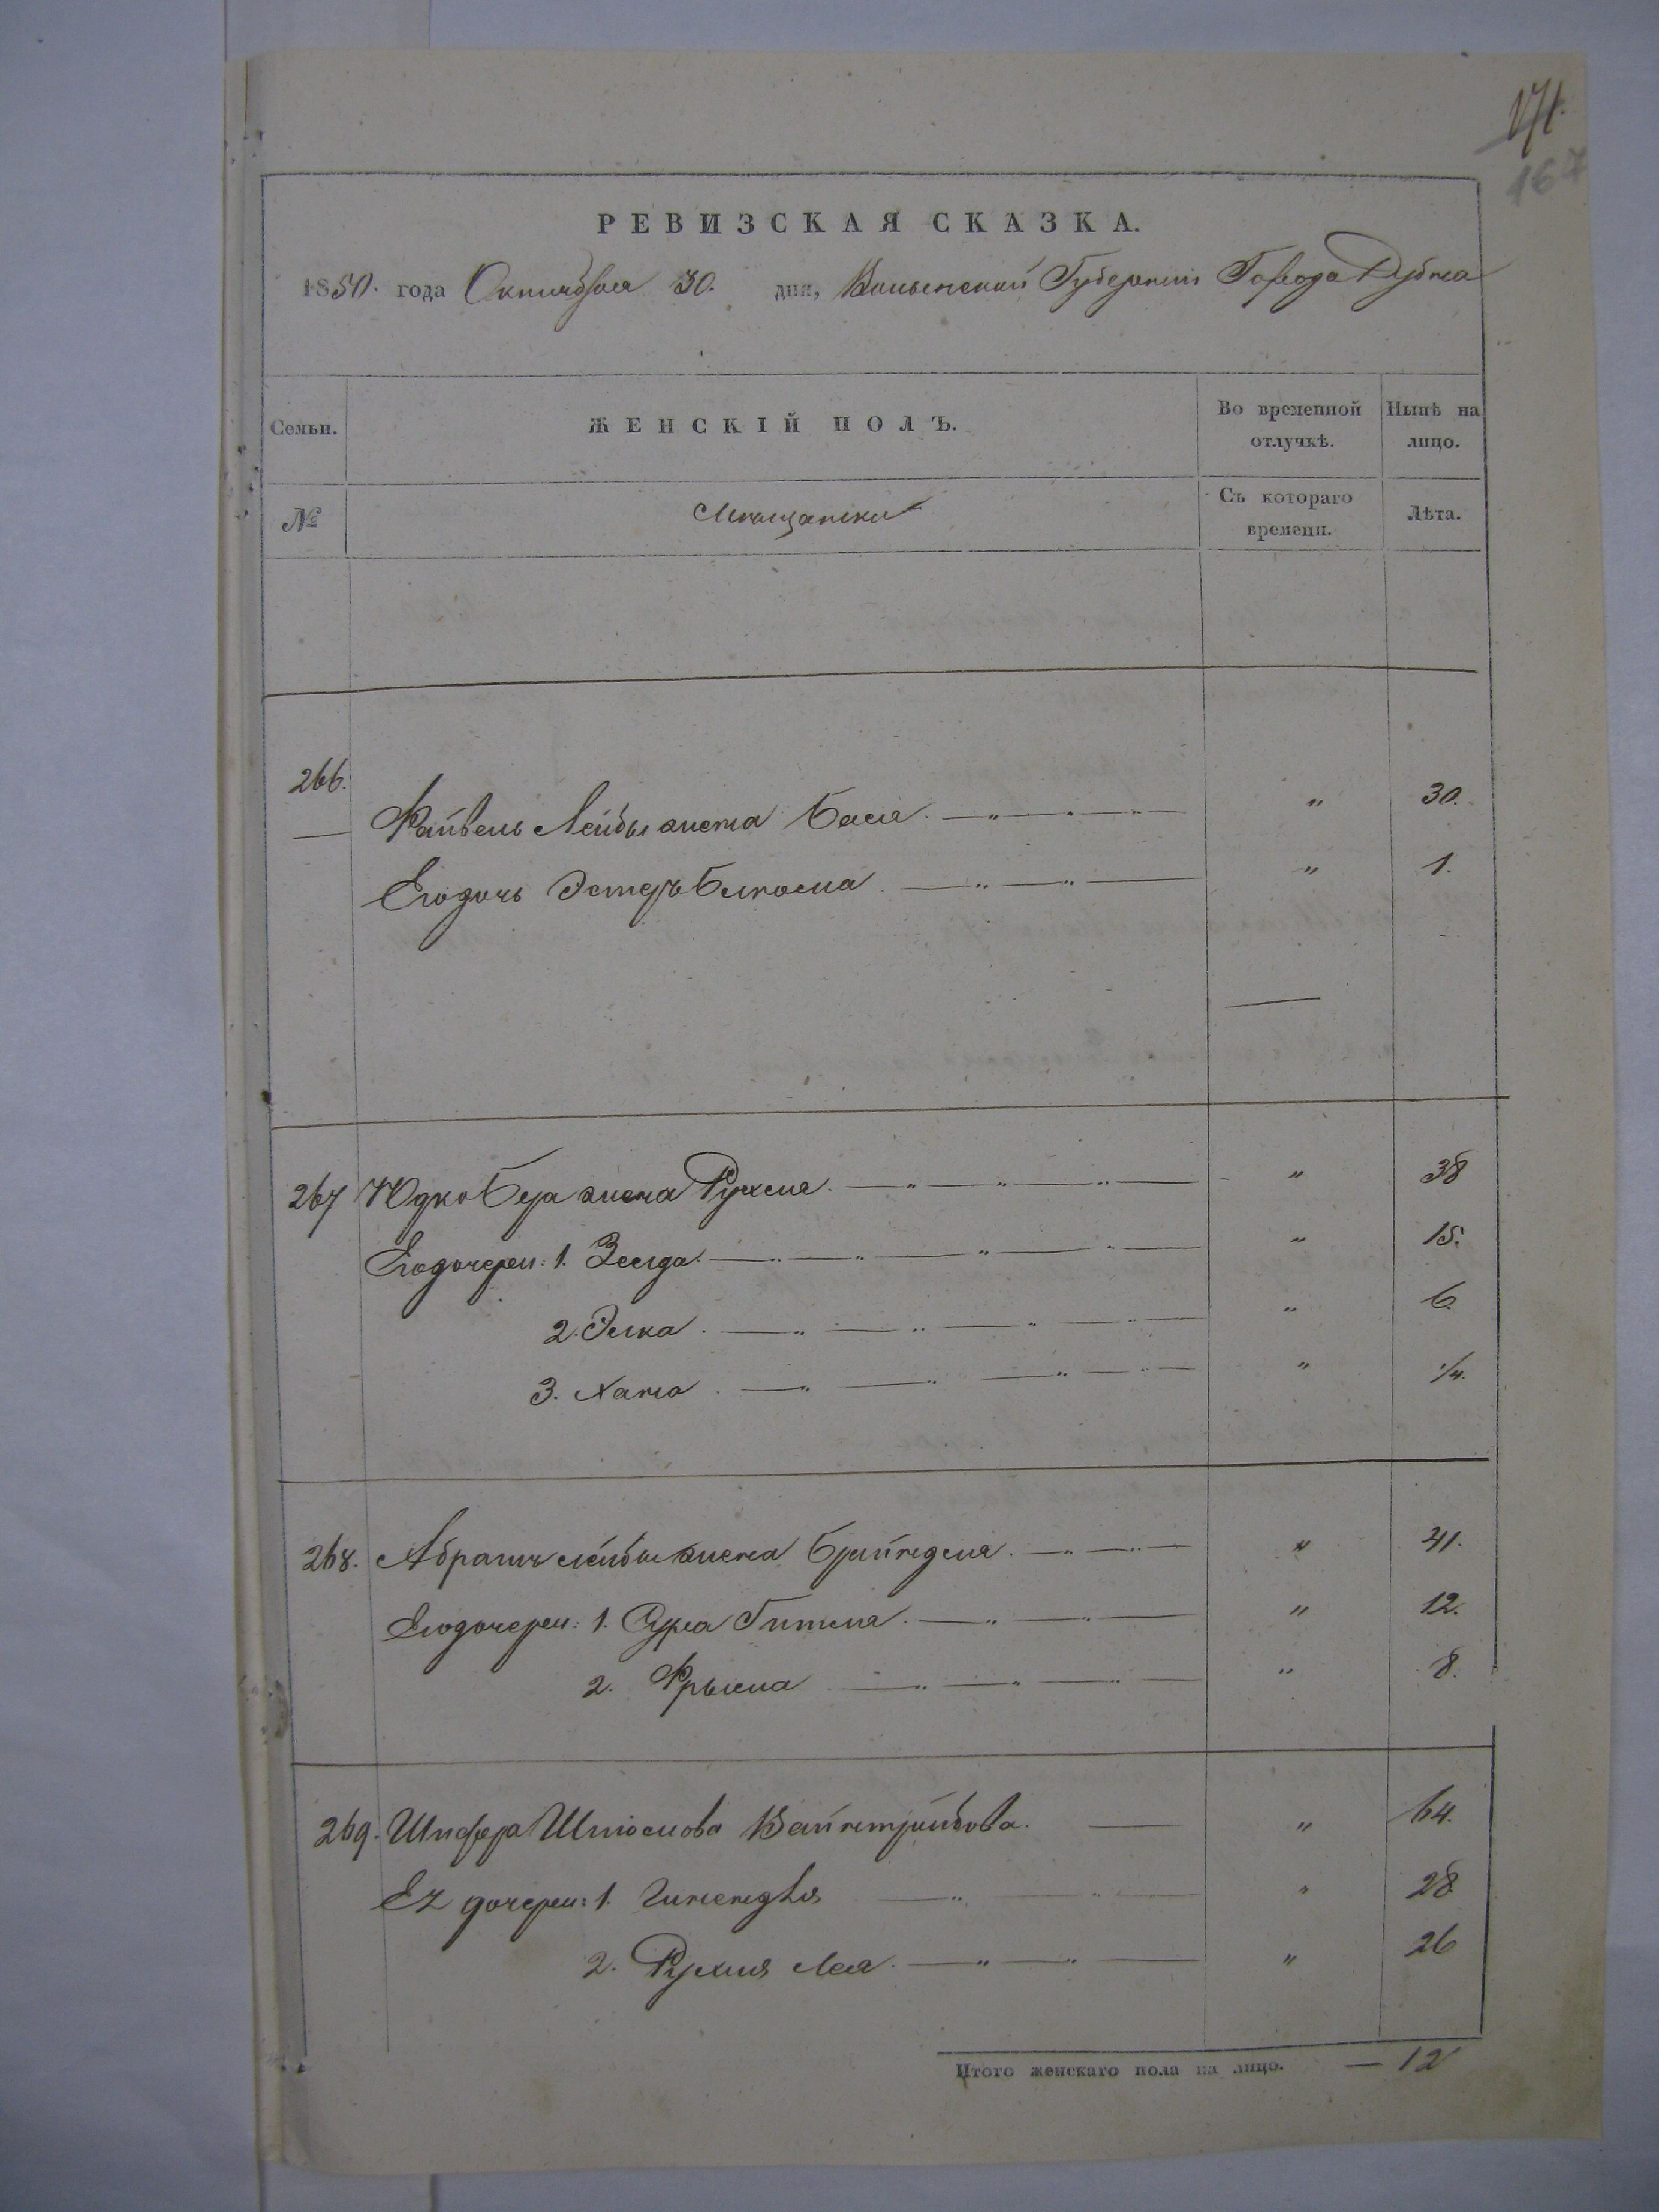 171.
167
РЕВИЗСКАЯ СКАЗКА.
1850. года Октября 30. дня, Волынской Губернии Города Дубна
Семьи.
ЖЕНСКІЙ ПОЛЪ.
Во временной отлучкѣ.
Нынѣ на лицо.
№
Мещанки
Съ котораго времени.
Лѣта.
266. Файвель Лейбы жена Бася. " 30.
Его дочь Эстеръ Бейла " 1.
267 Юдко Бера жена Рухля. " 38
Его дочери: 1. Зелда. " 15.
2. Элка. " 6.
3. Хана. " 1/4.
268. Абрамъ Лейбы жена Брайндля. " 41.
Его дочери: 1. Сура Гитля. " 12.
2. Фрыма " 8.
269. Шифра Шмюлова " 64.
Ея дочери: 1. " 28
2. Рухля Лея. " 26
Итого женскаго пола на лицо. — 12